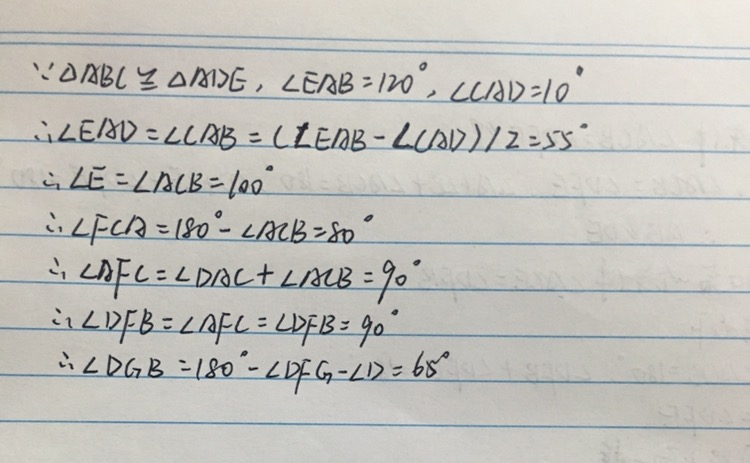 ∵△ABC≌△ADE，∠EAB=120°，∠CAD=10°
∴∠EAD=∠CAB=(∠EAB-∠CAD)/2=55°
∴∠E=∠ACB=100°
∴∠FCA=180°-∠ACB=80°
∴∠AFC=∠DAC+∠ACB=90°
∴∠DFB=∠AFC=∠DFB=90°
∴∠DGB=180°-∠DFG-∠D=65°